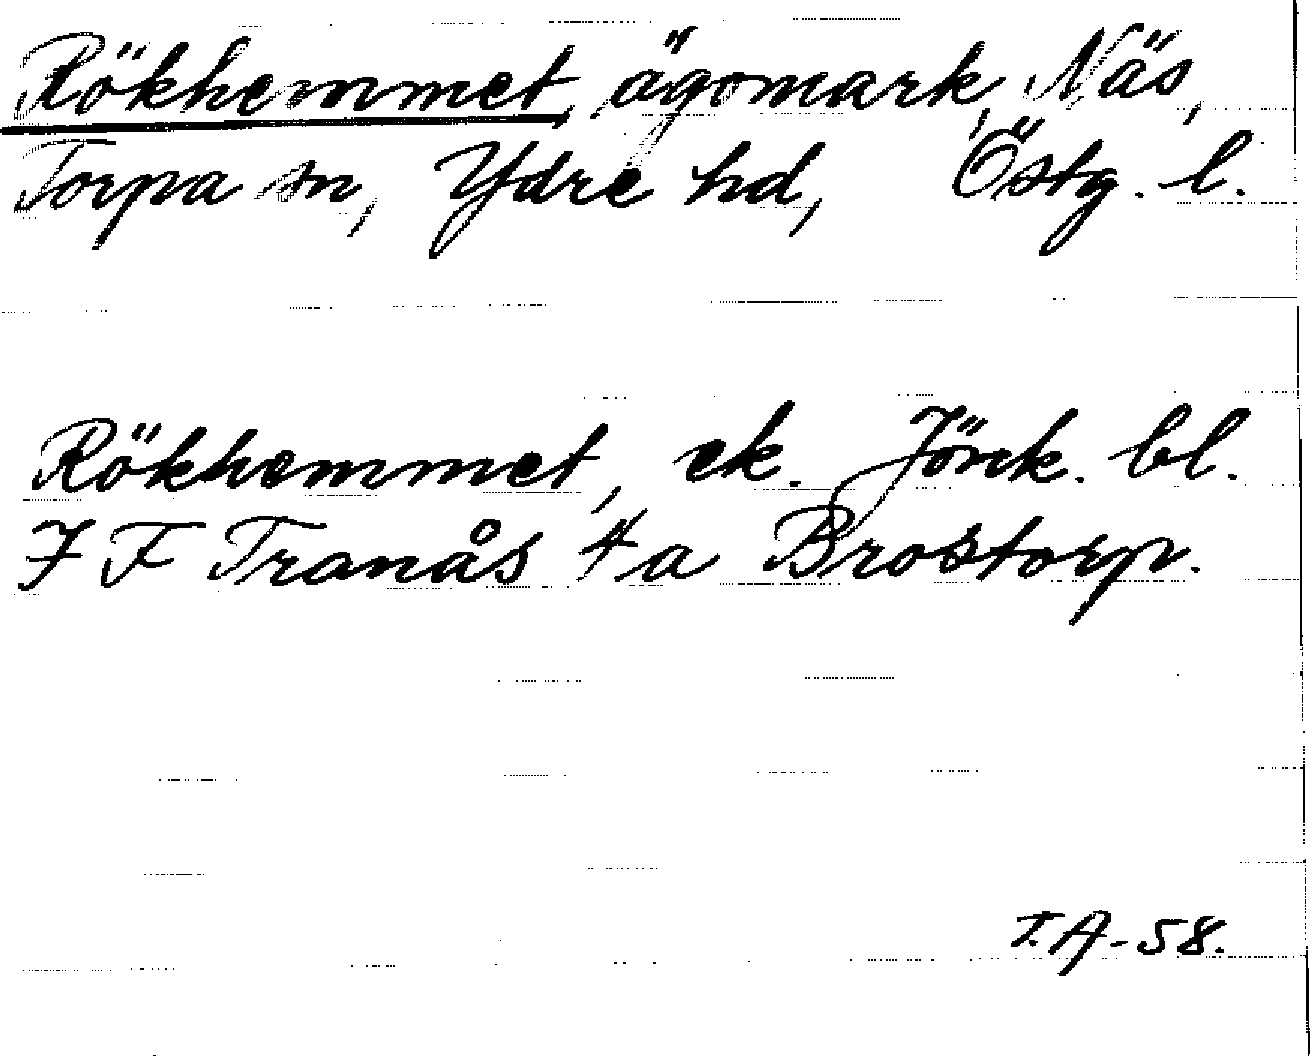 Rökhemmet, ägomark, Näs,
Torpa sn, Ydre hd, Östg. l.
Rökhemmet, ek. Jönk. bl.
7 F Tranås 4 a Brostorp.
T.A-58.